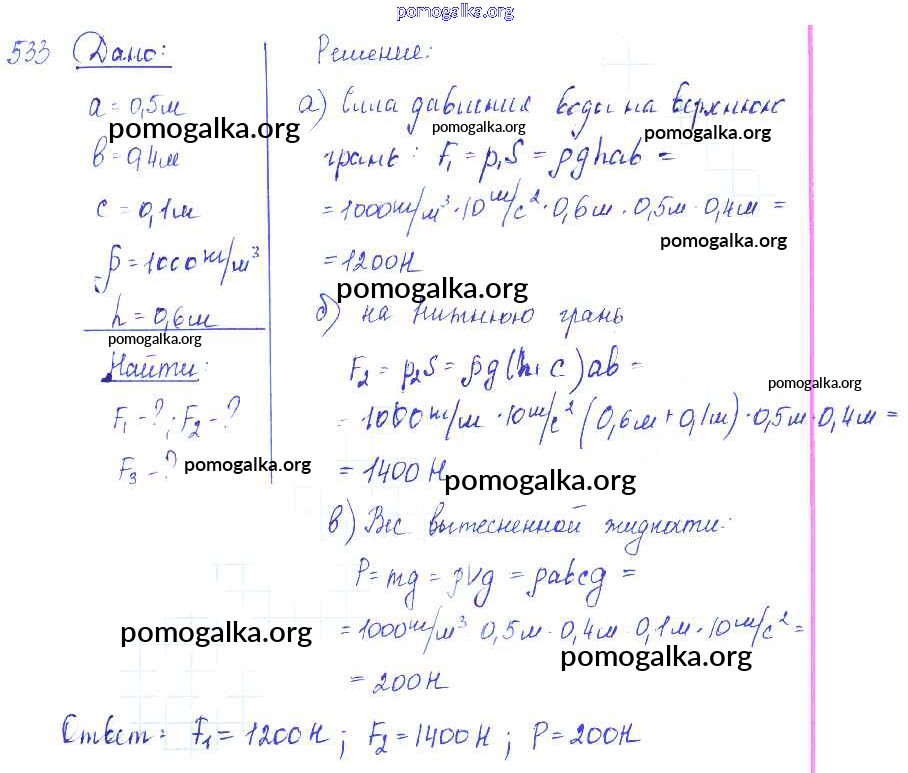 pomogalka.org
533 Дано:
a = 0,5м
pomogalka.org
в = 0,4м
c = 0,1м
ρ = 1000 кг/м³
h = 0,6м
pomogalka.org
Найти:
F₁ - ? ; F₂ - ?
F₃ - ? pomogalka.org
Решение:
а) Сила давления воды на верхнюю
pomogalka.org pomogalka.org
грань: F₁ = p₁S = ρghab =
= 1000 кг/м³ · 10 м/с² · 0,6м · 0,5м · 0,4м =
pomogalka.org
= 1200 Н
pomogalka.org
б) на нижнюю грань
F₂ = p₂S = ρg(h+c)ab =
pomogalka.org
= 1000 кг/м · 10 м/с² (0,6м + 0,1м) · 0,5м · 0,4м =
= 1400 Н
pomogalka.org
в) Вес вытесненной жидкости:
P = mg = ρVg = ρabcg =
= 1000 кг/м³ 0,5м · 0,4м · 0,1м · 10 м/с² =
pomogalka.org pomogalka.org
= 200 Н
Ответ: F₁ = 1200 Н ; F₂ = 1400 Н ; P = 200 Н